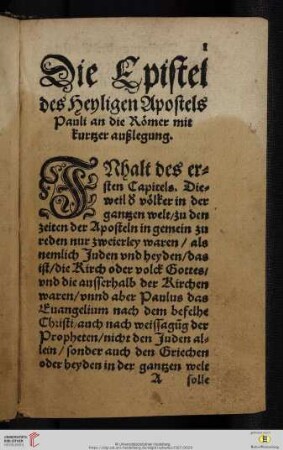 1
Die Epistel
des Heyligen Apostels
Pauli an die Römer mit
kurtzer außlegung.
INhalt des er-
sten Capitels. Die-
weil d völker in der
gantzen welt/zu den
zeiten der Aposteln in gemein zu
reden nur zweierley waren/ als
nemlich Juden vnd heyden/das
ist/die Kirch oder volck Gottes/
vnd die ausserhalb der Kirchen
waren/vnnd aber Paulus das
Euangelium nach dem befelhe
Christi/auch nach weissagūg der
Propheten/nicht den Juden al-
lein/sonder auch den Griechen
oder heyden in der gantzen welt
A solle